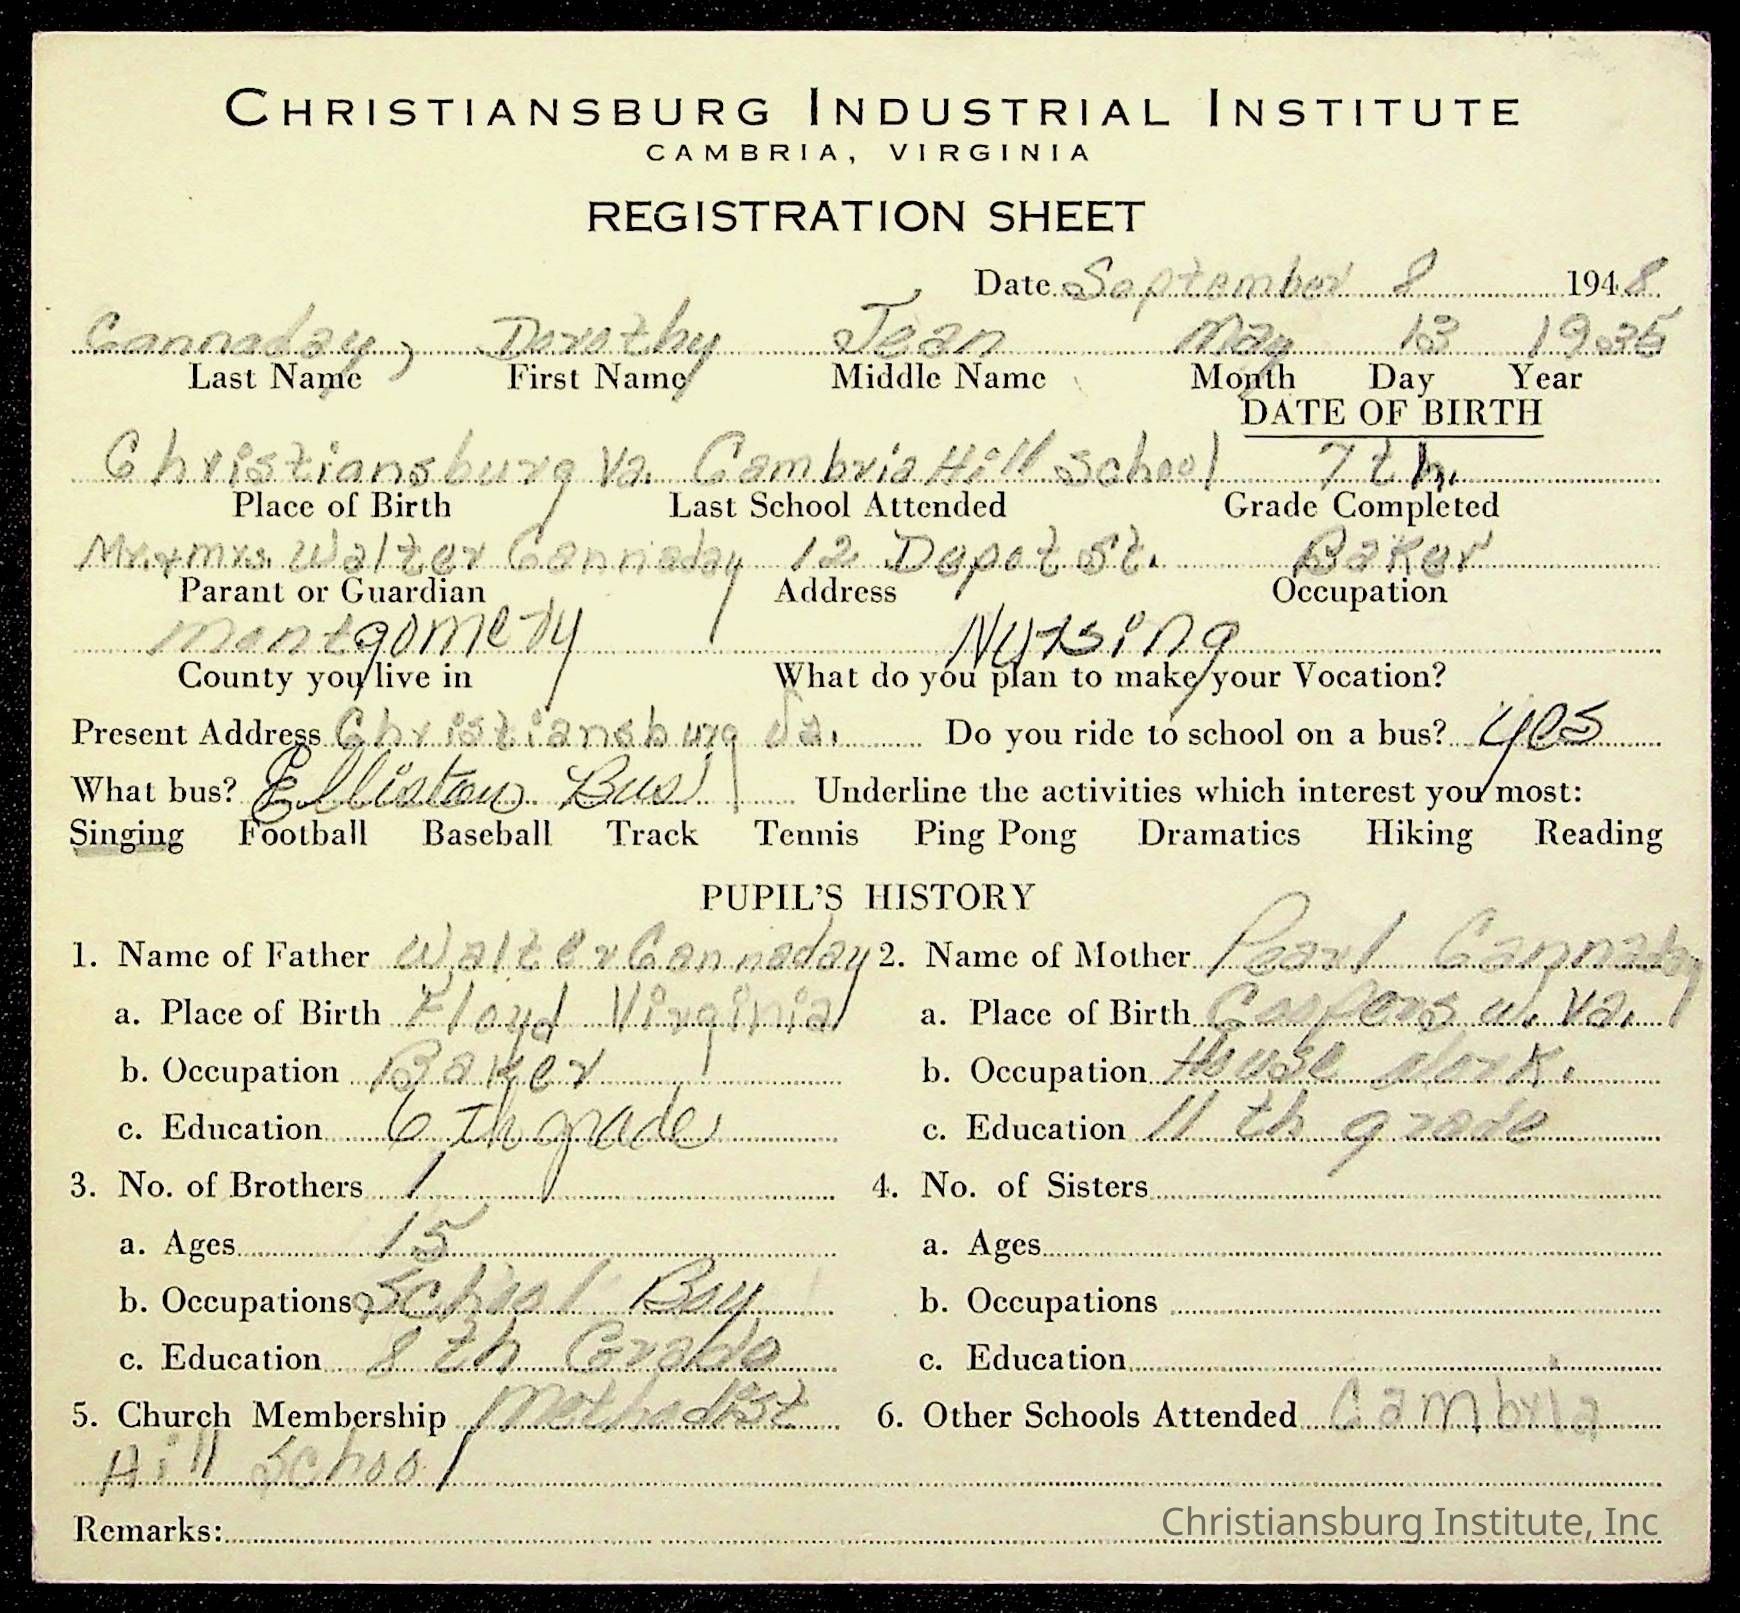 CHRISTIANSBURG INDUSTRIAL INSTITUTE
CAMBRIA, VIRGINIA
REGISTRATION SHEET
Date September 8 1948
Cannaday, Dorothy Jean May 13 1935
Last Name First Name Middle Name Month Day Year
DATE OF BIRTH
Christiansburg Va. Cambria Hill School 7th.
Place of Birth Last School Attended Grade Completed
Mr. + Mrs. Walter Cannaday 12 Depot St. Baker
Parant or Guardian Address Occupation
Montgomery Nursing
County you live in What do you plan to make your Vocation?
Present Address Christiansburg Va. Do you ride to school on a bus? yes
What bus? Elliston Bus Underline the activities which interest you most:
Singing Football Baseball Track Tennis Ping Pong Dramatics Hiking Reading
PUPIL'S HISTORY
1. Name of Father Walter Cannaday 2. Name of Mother Pearl Cannaday
a. Place of Birth Floyd Virginia a. Place of Birth W. Va.
b. Occupation Baker b. Occupation House Work.
c. Education 6th grade c. Education 11th grade
3. No. of Brothers 1 4. No. of Sisters
a. Ages 15 a. Ages
b. Occupations School Boy b. Occupations
c. Education 8th Grade c. Education
5. Church Membership Methodist 6. Other Schools Attended Cambria
Hill School
Remarks:
Christiansburg Institute, Inc